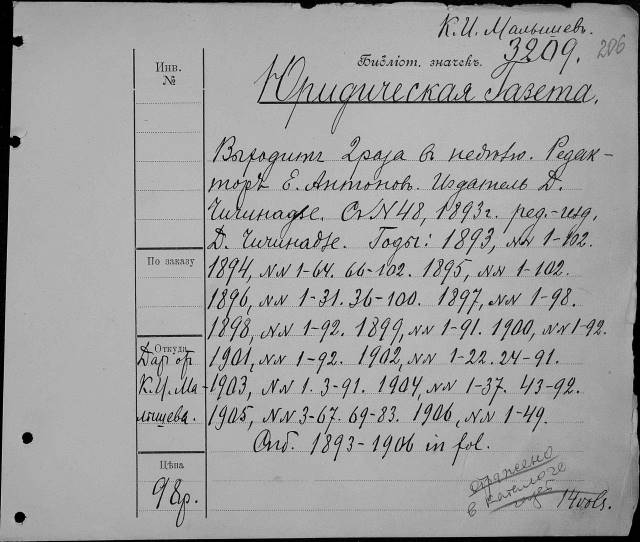 К. И. Малышевъ.
3209. 206
Инв. №
Библіот. значекъ.
Юридическая газета.
Выходитъ 2 раза въ недѣлю. Редак-
торъ Е. Антоновъ. Издатель Д.
Чичинадзе. Съ N 48, 1893 г. ред.-изд.
Д. Чичинадзе. Годы: 1893, NN 1-102.
По заказу
1894, NN 1-64. 66-102. 1895, NN 1-102.
1896, NN 1-31. 36-100. 1897, NN 1-98.
1898, NN 1-92. 1899, NN 1-91. 1900, NN 1-92.
Откуда
Даръ отъ
К. И. Ма-
лышева.
1901, NN 1-92. 1902, NN 1-22. 24-91.
1903, NN 1. 3-91. 1904, NN 1-37. 43-92.
1905, NN 3-67. 69-83. 1906, NN 1-49.
Спб. 1893-1906 in fol.
Цѣна
98р.
отражено
в каталоге
газет
14 vols.